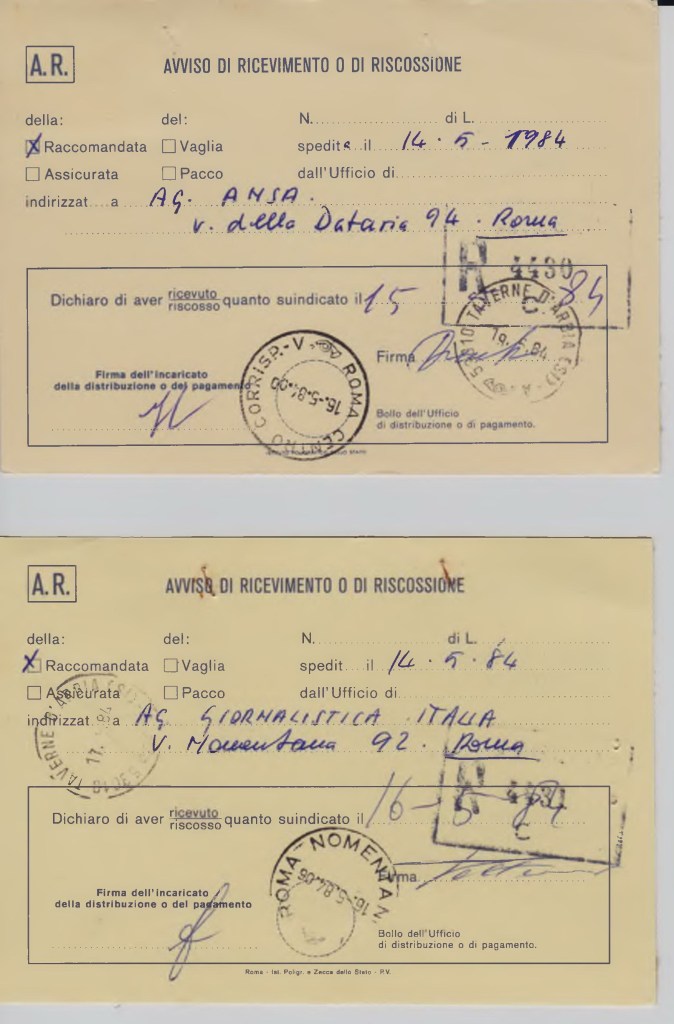 A.R. AVVISO DI RICEVIMENTO O DI RISCOSSIONE
della: del: N. di L.
X Raccomandata Vaglia spedita il 14 · 5 - 1984
Assicurata Pacco dall'Ufficio di
indirizzat a AG. ANSA.
v. della Dataria 94. Roma
R 4430
C
Dichiaro di aver ricevuto quanto suindicato il 15 84
riscosso
53010 TAVERNE D'ARBIA (SI) - A
19.5.84
Firma
Firma dell'incaricato
della distribuzione o del pagamento
ROMA CENTRO CORRISP.-V.
16.-5.84.00
Bollo dell'Ufficio
di distribuzione o di pagamento.
A.R. AVVISO DI RICEVIMENTO O DI RISCOSSIONE
della: del: N. di L.
X Raccomandata Vaglia spedit il 14 · 5 · 84
Assicurata Pacco dall'Ufficio di
indirizzat a AG GIORNALISTICA ITALIA
V. Nomentana 92. Roma
TAVERNE D'ARBIA (SI)
17 84
R 4430
C
Dichiaro di aver ricevuto quanto suindicato il 16 - 5 - 84
riscosso
ROMA NOMENTAN
16.-5.84.06
Firma
Firma dell'incaricato
della distribuzione o del pagamento
Bollo dell'Ufficio
di distribuzione o di pagamento.
Roma - Ist. Poligr. e Zecca dello Stato - P.V.